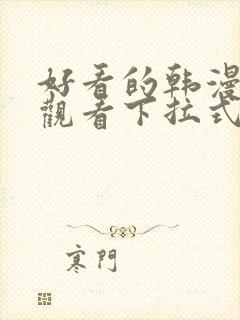 好看的韩漫
觀看下拉式
寒門